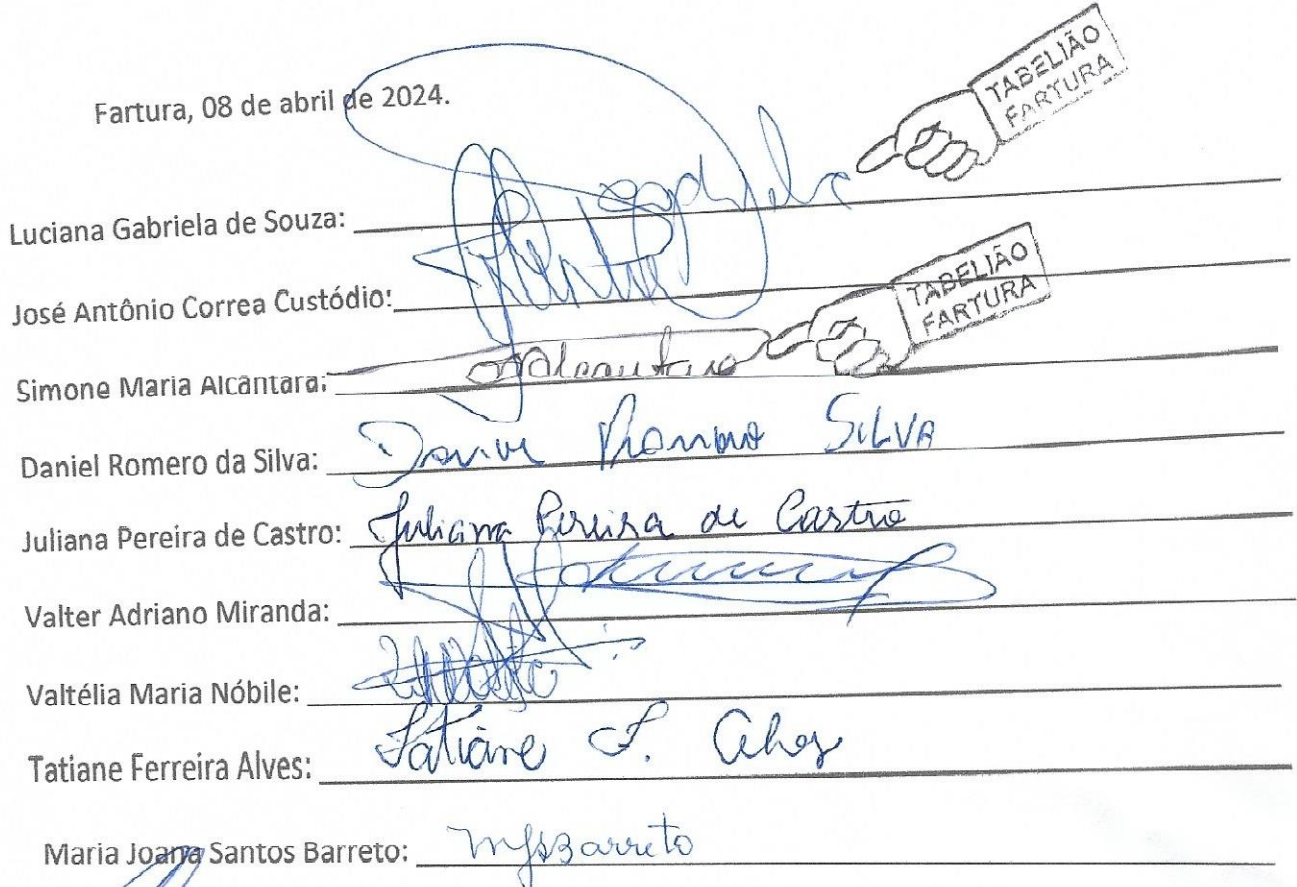 TABELIÃO
FARTURA
Fartura, 08 de abril de 2024.
Luciana Gabriela de Souza:
José Antônio Correa Custódio:
TABELIÃO
FARTURA
Simone Maria Alcântara: Alcantara
Daniel Romero da Silva: Daniel Romero SILVA
Juliana Pereira de Castro: Juliana Pereira de Castro
Valter Adriano Miranda:
Valtélia Maria Nóbile:
Tatiane Ferreira Alves: Tatiane F. Alves
Maria Joana Santos Barreto: MJSBarreto